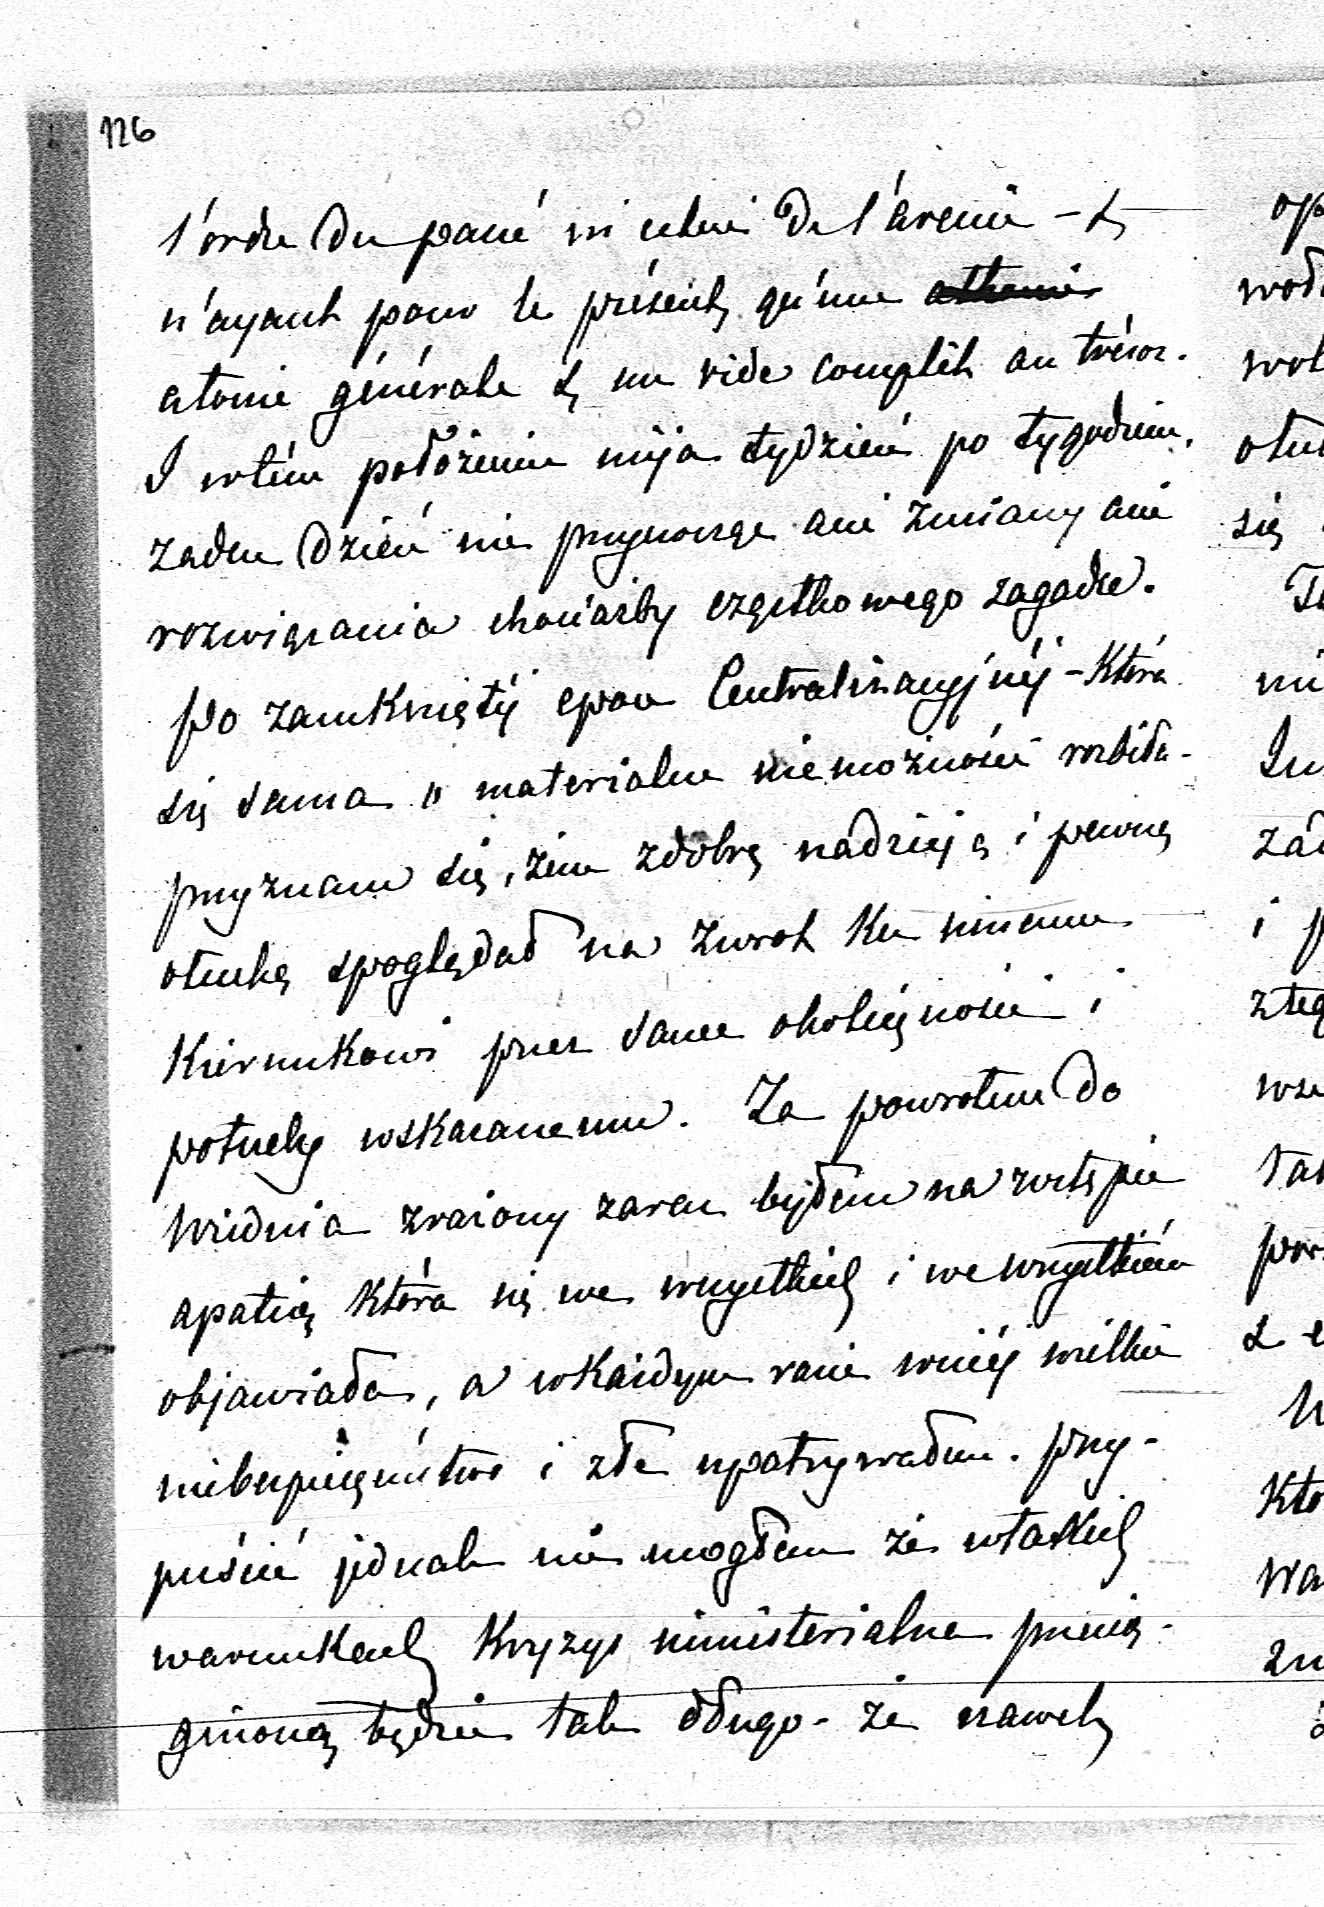 126
l'ordre du passé ni celui de l'avenir – &
n'ayant pour le présent, qu'une
atonie générale & un vide complet au trésor.
I w tém położeniu mija tydzień po tygodniu,
żaden dzień nie przynosząc ani zmiany ani
rozwiązania chociażby cząstkowego zagadce.
Po zamkniętéj epoce Centralizacyjnéj – która
się sama o materialne niemożności rozbiła –
przyznam się, żem z dobrą nadzieją i pewną
otuchą spoglądał na zwrot ku innemu
kierunkowi przez same okoliczności i
potrzeby wskazanemu. Za powrotem do
Widnia zrażony zaraz byłem na wstępie
apatią która się we wszystkich i we wszystkiém
objawiała, a w każdym razie w niéj wielkie
niebezpieczeństwo i złe upatrywałem. Przy-
puścić jednak nie mogłem że w takich
warunkach kryzys ministerialne przecią-
gnioną będzie tak długo – że nawet,
op
wod
wol
otu
się
Te
ni
zad
i p
z teg
wsz
tak
por
& e
W
Kto
Wa
zn